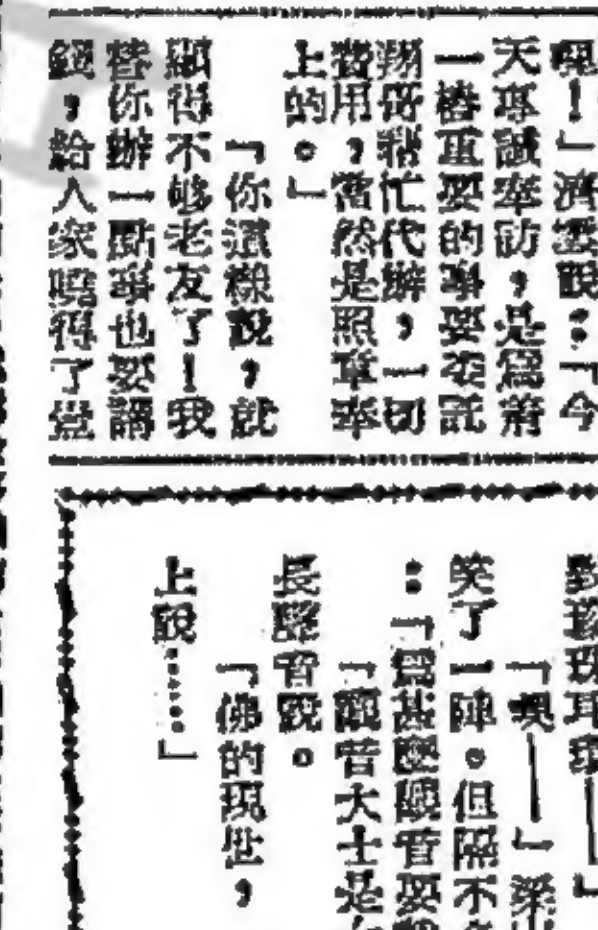 ！」濟雲說：「今
天專誠奉訪，是爲着
一樁重要的事要委託
翔哥幫忙代辦，一切
費用，當然是照章奉
上的。」
「你這樣說，就
顯得不够老友了！我
替你辦一點事也要講
錢，給人家曉得了豈
珍珠耳環——」
「噢——」梁
笑了一陣。但隔不
：「爲甚麼觀音要
「觀音大士是
長聲音說。
「佛的現世，
上說……」